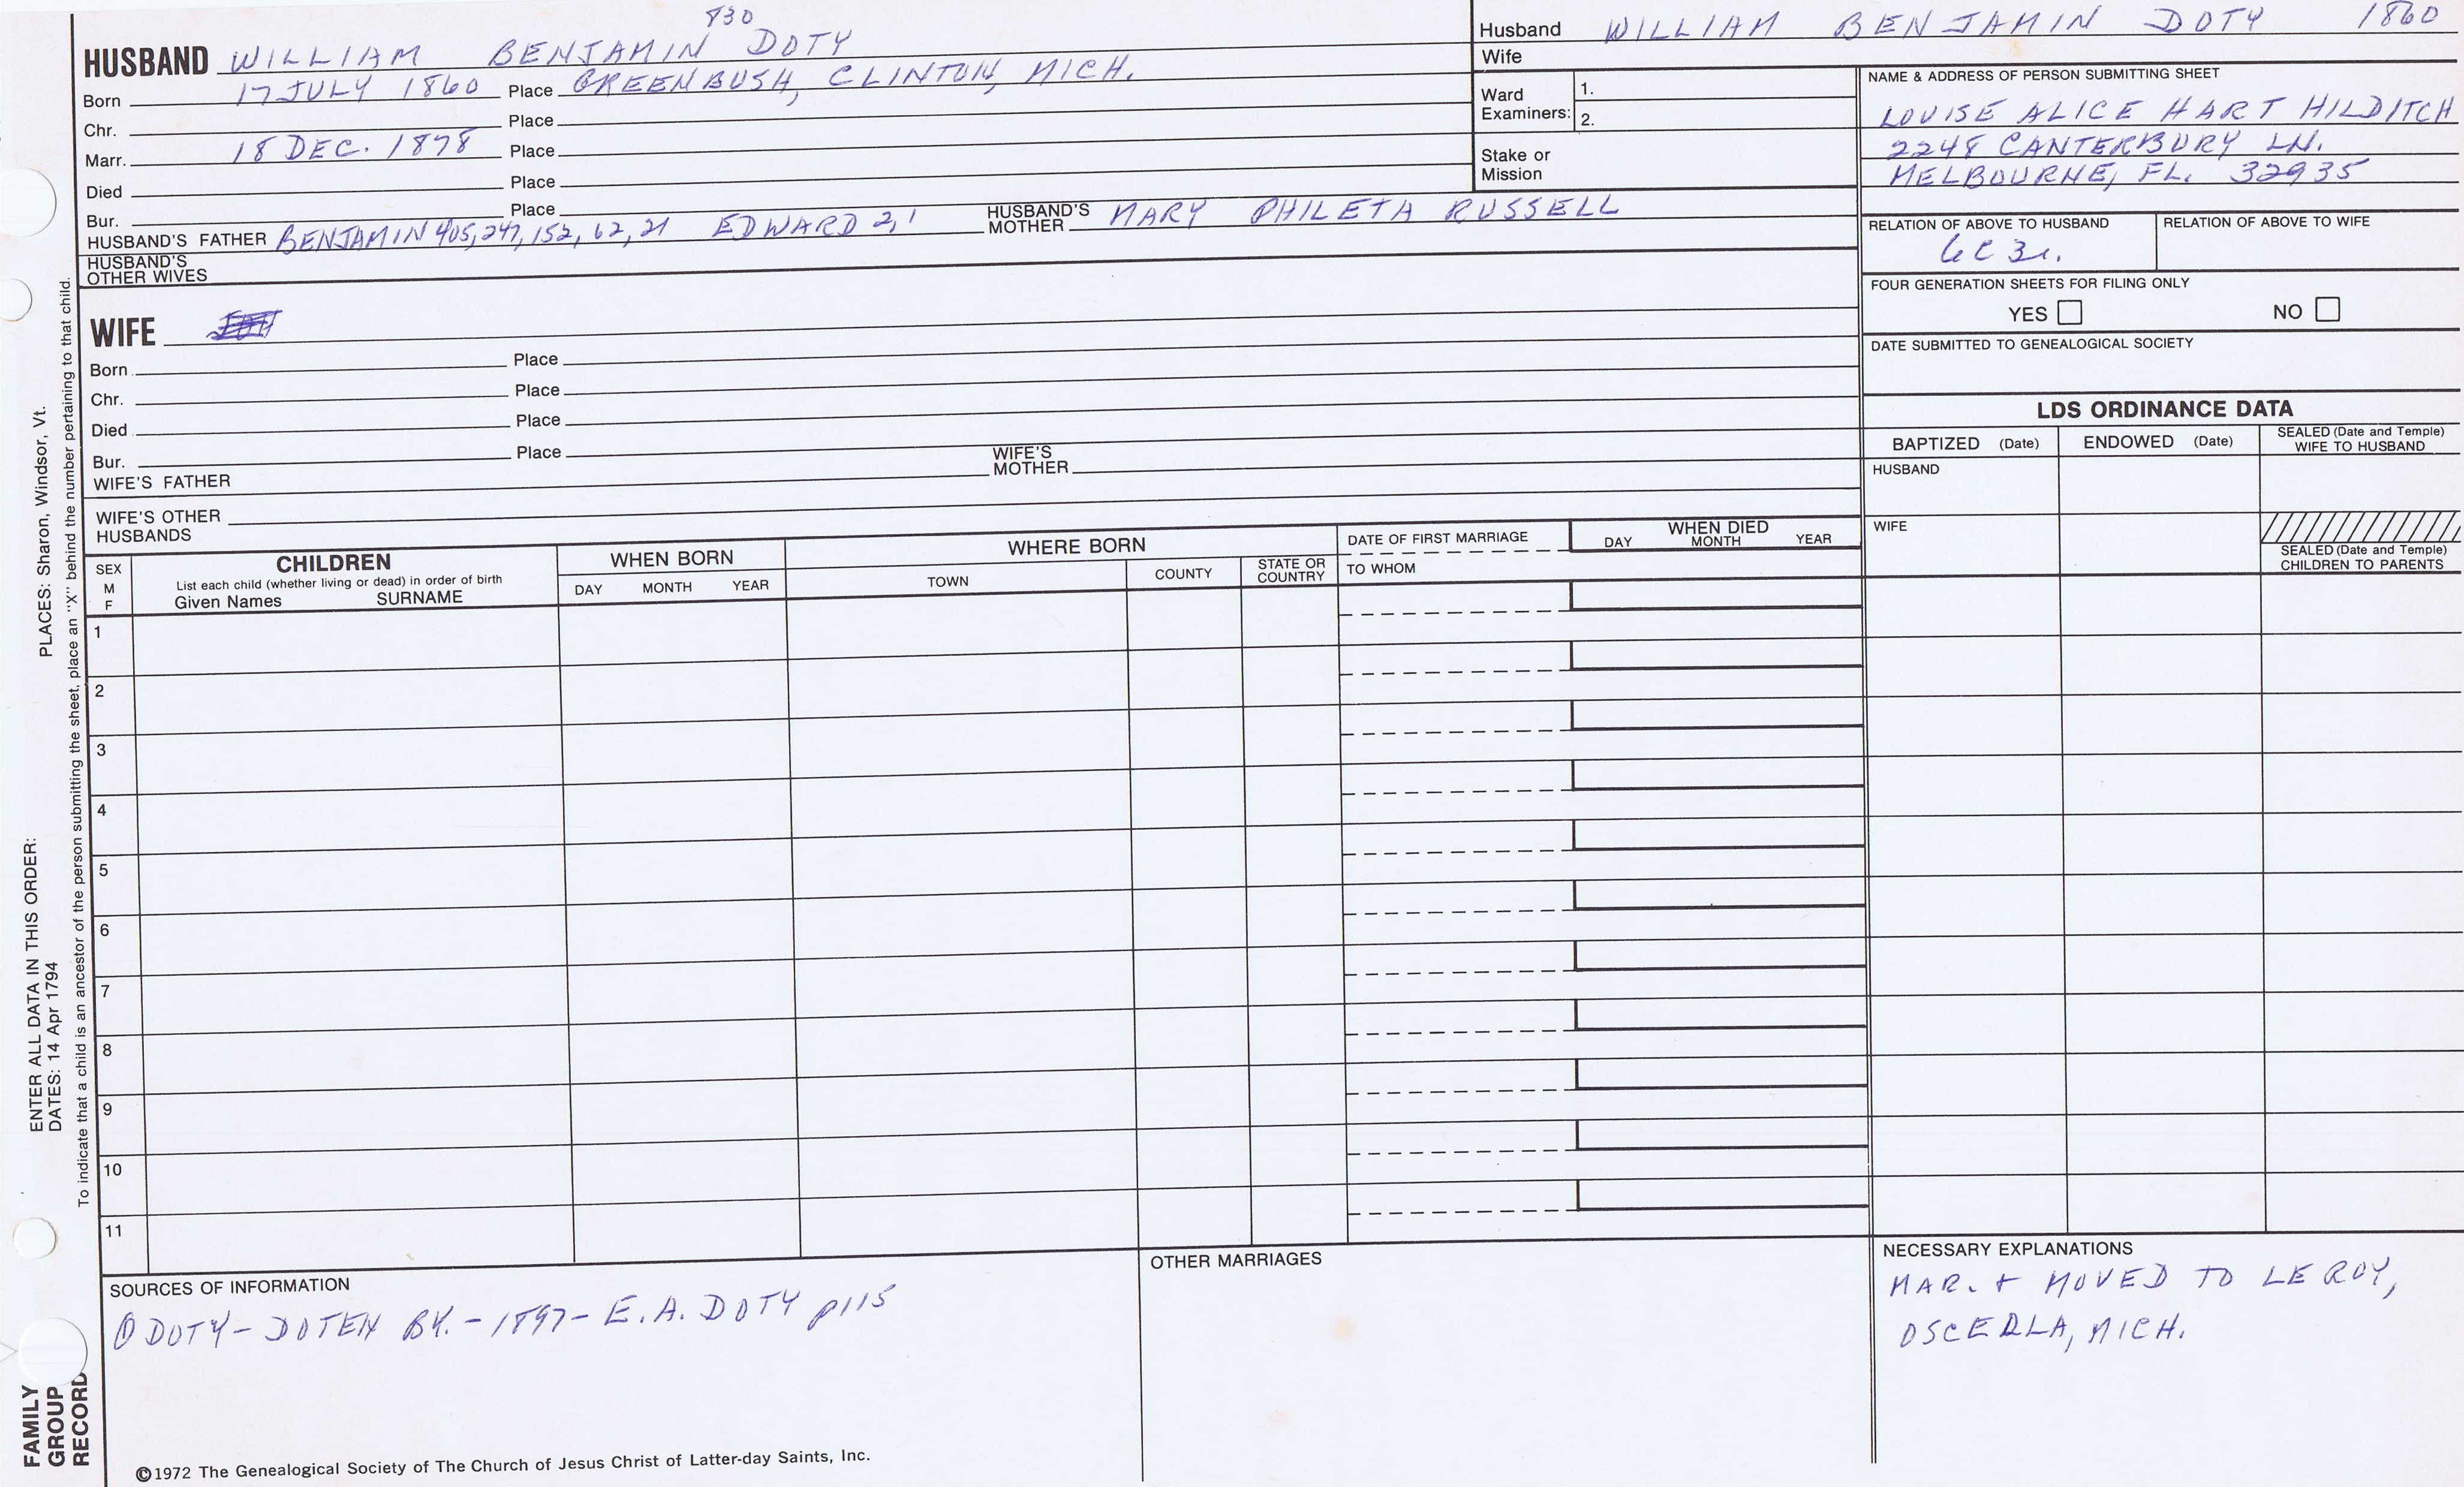 830
HUSBAND WILLIAM BENJAMIN DOTY
Born 17 JULY 1860 Place GREENBUSH, CLINTON, MICH.
Chr. Place
Marr. 18 DEC. 1878 Place
Died Place
Bur. Place
HUSBAND'S FATHER BENJAMIN 405, 247, 152, 62, 21 EDWARD 2, 1 HUSBAND'S MOTHER MARY PHILETA RUSSELL
HUSBAND'S OTHER WIVES
Husband WILLIAM BENJAMIN DOTY 1860
Wife
Ward Examiners: 1.
2.
Stake or Mission
NAME & ADDRESS OF PERSON SUBMITTING SHEET
LOUISE ALICE HART HILDITCH
2248 CANTERBURY LN.
MELBOURNE, FL. 32935
RELATION OF ABOVE TO HUSBAND RELATION OF ABOVE TO WIFE
FOUR GENERATION SHEETS FOR FILING ONLY
YES NO
DATE SUBMITTED TO GENEALOGICAL SOCIETY
WIFE
Born Place
Chr. Place
Died Place
Bur. Place
WIFE'S FATHER WIFE'S MOTHER
WIFE'S OTHER HUSBANDS
LDS ORDINANCE DATA
BAPTIZED (Date) ENDOWED (Date) SEALED (Date and Temple) WIFE TO HUSBAND
HUSBAND
WIFE
SEALED (Date and Temple) CHILDREN TO PARENTS
SEX M F
CHILDREN
List each child (whether living or dead) in order of birth
Given Names SURNAME
WHEN BORN
DAY MONTH YEAR
WHERE BORN
TOWN COUNTY STATE OR COUNTRY
DATE OF FIRST MARRIAGE
TO WHOM
WHEN DIED
DAY MONTH YEAR
1
2
3
4
5
6
7
8
9
10
11
SOURCES OF INFORMATION
① DOTY-DOTEN BY. - 1897 - E.A. DOTY p115
OTHER MARRIAGES
NECESSARY EXPLANATIONS
MAR. + MOVED TO LE ROY,
OSCEOLA, MICH.
©1972 The Genealogical Society of The Church of Jesus Christ of Latter-day Saints, Inc.
FAMILY
GROUP
RECORD
ENTER ALL DATA IN THIS ORDER:
DATES: 14 Apr 1794 PLACES: Sharon, Windsor, Vt.
To indicate that a child is an ancestor of the person submitting the sheet, place an "X" behind the number pertaining to that child.